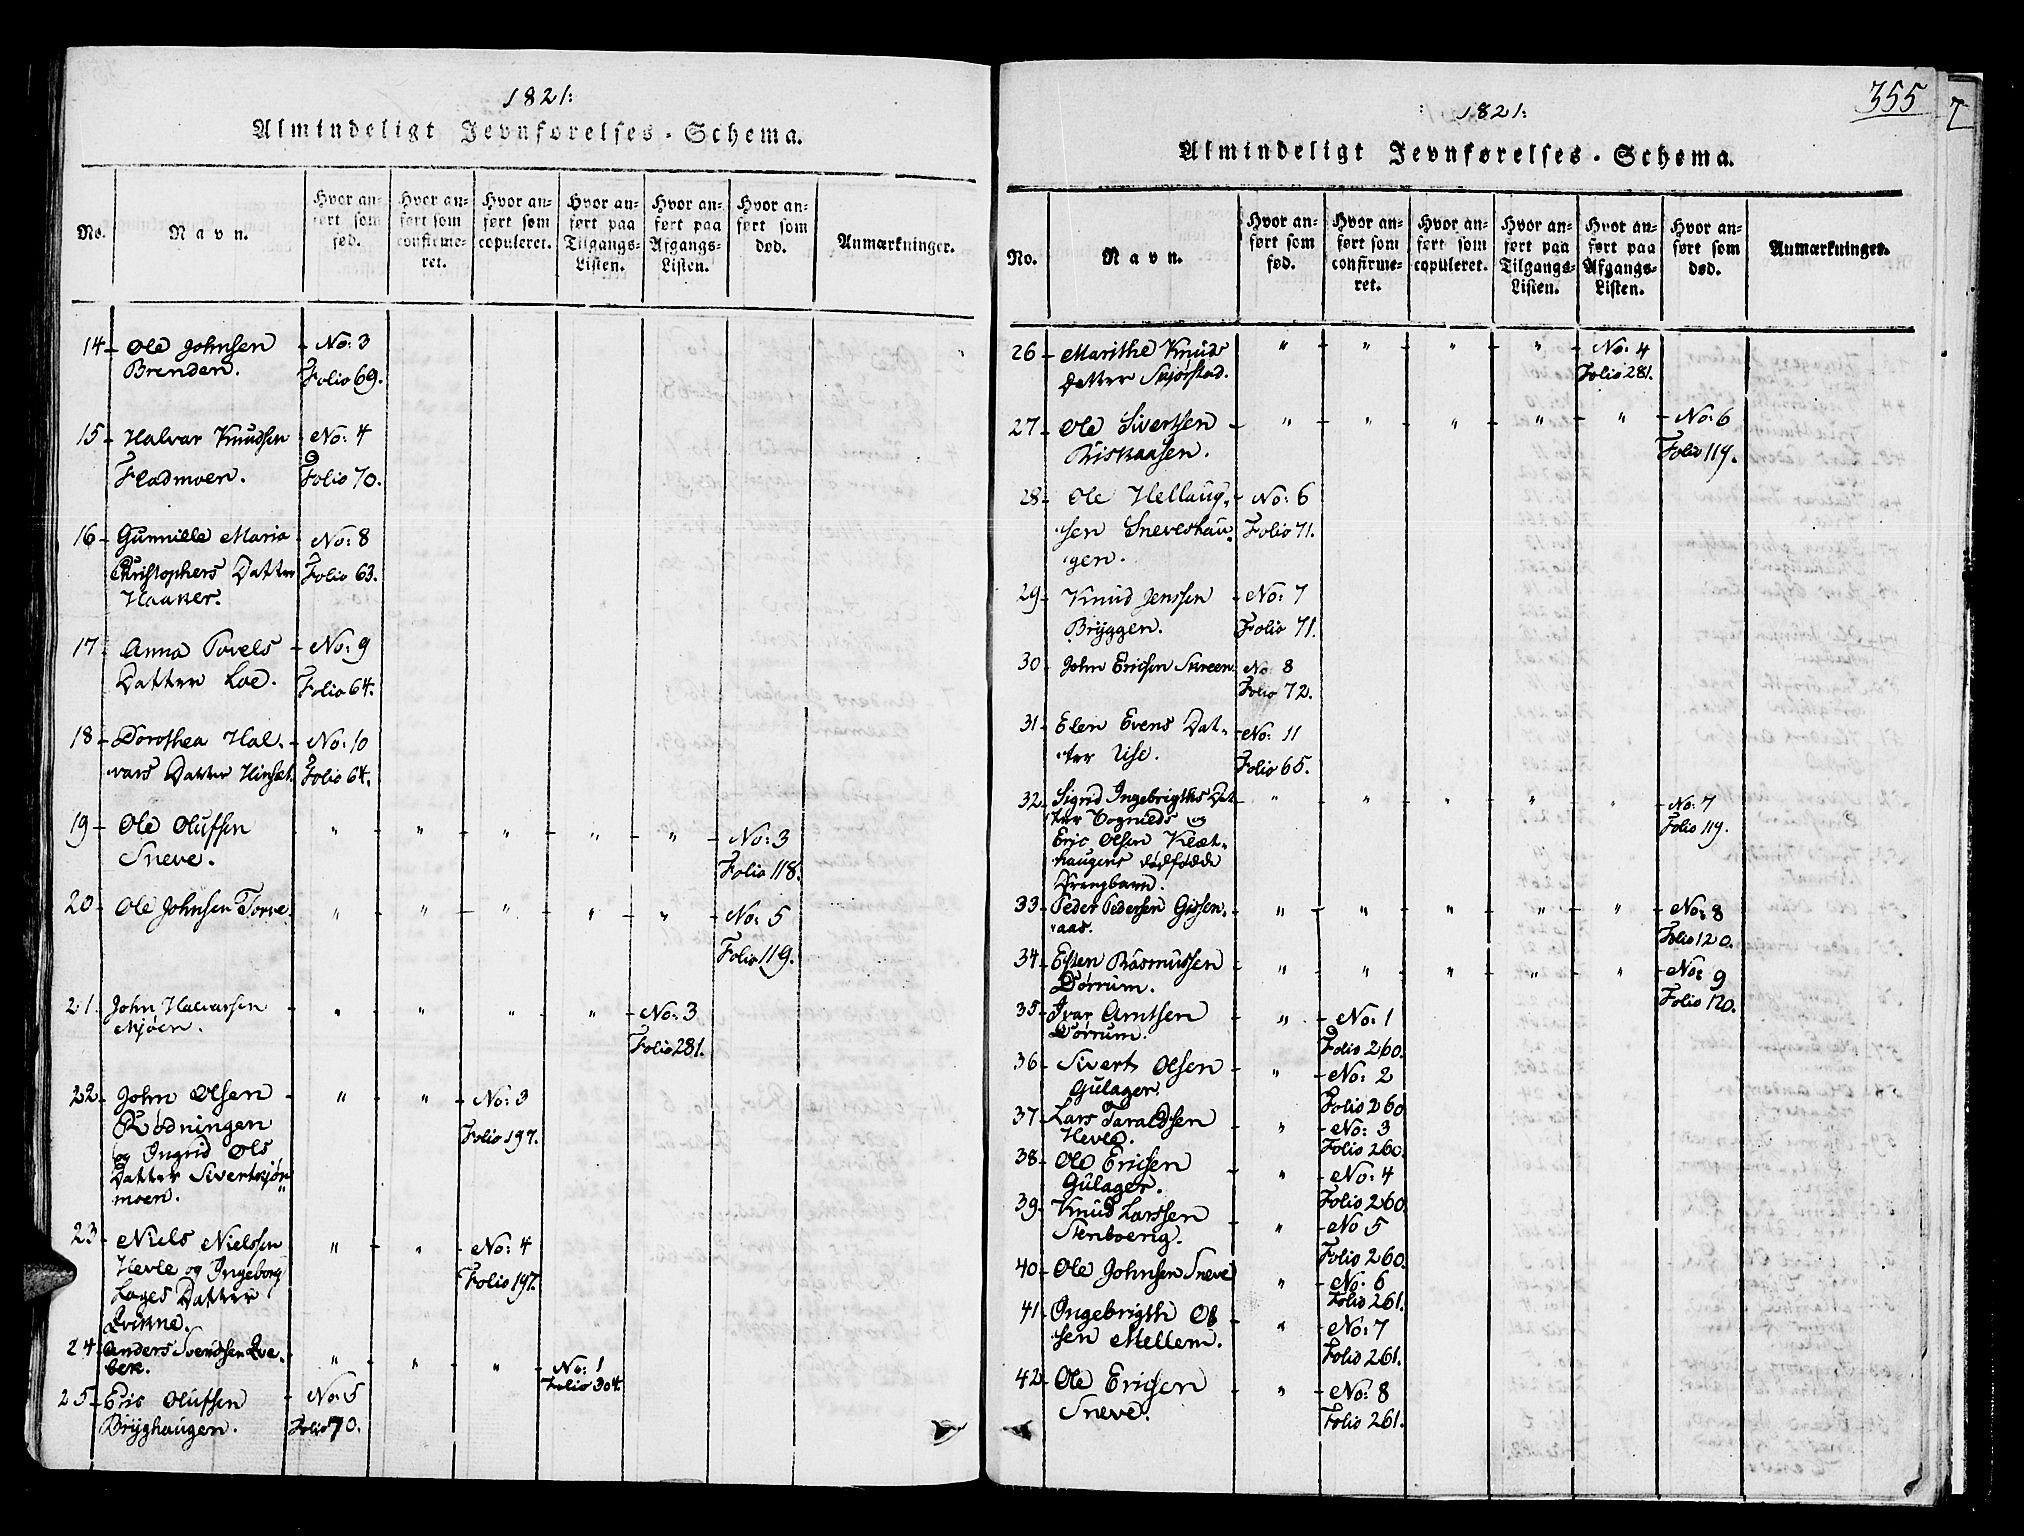 1821:
Almindeligt Jevnførelses-Schema.
No.
Navn.
Hvor an-
ført som
fød.
Hvor an-
ført som
confirme-
ret.
Hvor an-
ført som
copuleret.
Hvor an-
ført paa
Tilgangs-
Listen.
Hvor an-
ført paa
Afgangs-
Listen.
Hvor an-
ført som
død.
Anmærkninger.
14 Ole Johnsen No: 3
Brenden. Folio 69.
15 Halvar Knudsen No: 4
Fladmoen. Folio 70.
16 Gunnille Maria No: 8
Christophers Datter Folio 63.
Haaker.
17 Anna Povels No: 9
Datter Loe. Folio 64.
18 Dorothea Hal- No: 10
vars Datter Hinset. Folio 64.
19 Ole Olufsen " " " " " No: 3
Sneve. Folio 118.
20 Ole Johnsen Torve. " " " " " No: 5
Folio 119.
21. John Halvarsen " " " " No: 3
Mjøen. Folio 281.
22 John Olsen " " No: 3
Rødningen Folio 197.
og Ingrid Ols
Datter Sivertsjør-
moen.
23 Niels Nielssen " " No: 4
Hevle og Ingeborg Folio 197.
Lages Datter
Qvikne.
24 Anders Svendsen Qve- " " " No: 1
berk. Folio 304
25 Eric Olufsen No: 5
Bryghaugen. Folio 70.
355
7
1821:
Almindeligt Jevnførelses-Schema.
No.
Navn.
Hvor an-
ført som
fød.
Hvor an-
ført som
confirme-
ret.
Hvor an-
ført som
copuleret.
Hvor an-
ført paa
Tilgangs-
Listen.
Hvor an-
ført paa
Afgangs-
Listen.
Hvor an-
ført som
død.
Anmærkninger.
26 Marithe Knuds " " " " No: 4
Datter Skjørstad. Folio 281.
27 Ole Sivertsen " " " " " No: 6
Riskaasen. Folio 119.
28 Ole Hellaug- No: 6
sen Sneveshau- Folio 71.
gen.
29 Knud Jenssen No: 7
Bryggen. Folio 71.
30 John Ericsen Skreen No 8
Folio 72.
31 Elen Evens Dat- No: 11
ter Use. Folio 65.
32 Sigrid Ingebrigths Dat- " " " " " No: 7
ter Vognilds og Folio 119.
Eric Olsen Klæt-
haugens dødfødde
Drengbarn.
33 Peder Pedersen Gissen- " " " " " No: 8
aas. Folio 120.
34 Esten Rasmussen " " " " " No: 9
Dørrum. Folio 120.
35 Ivar Arntsen " No: 1
Dørrum. Folio 260.
36 Sivert Olsen " No: 2
Gulager. Folio 260
37 Lars Taraldsen " No: 3
Hevle. Folio 260.
38 Ole Ericsen " No: 4
Gulager. Folio 260
39 Knud Larssen " No 5
Stenboerig. Folio 260.
40 Ole Johnsen Sneve " No: 6
Folio 261.
41 Ingebrigth Ol " No: 7
sen Mellem. Folio 261.
42 Ole Ericsen " No: 8
Sneve. Folio 261.